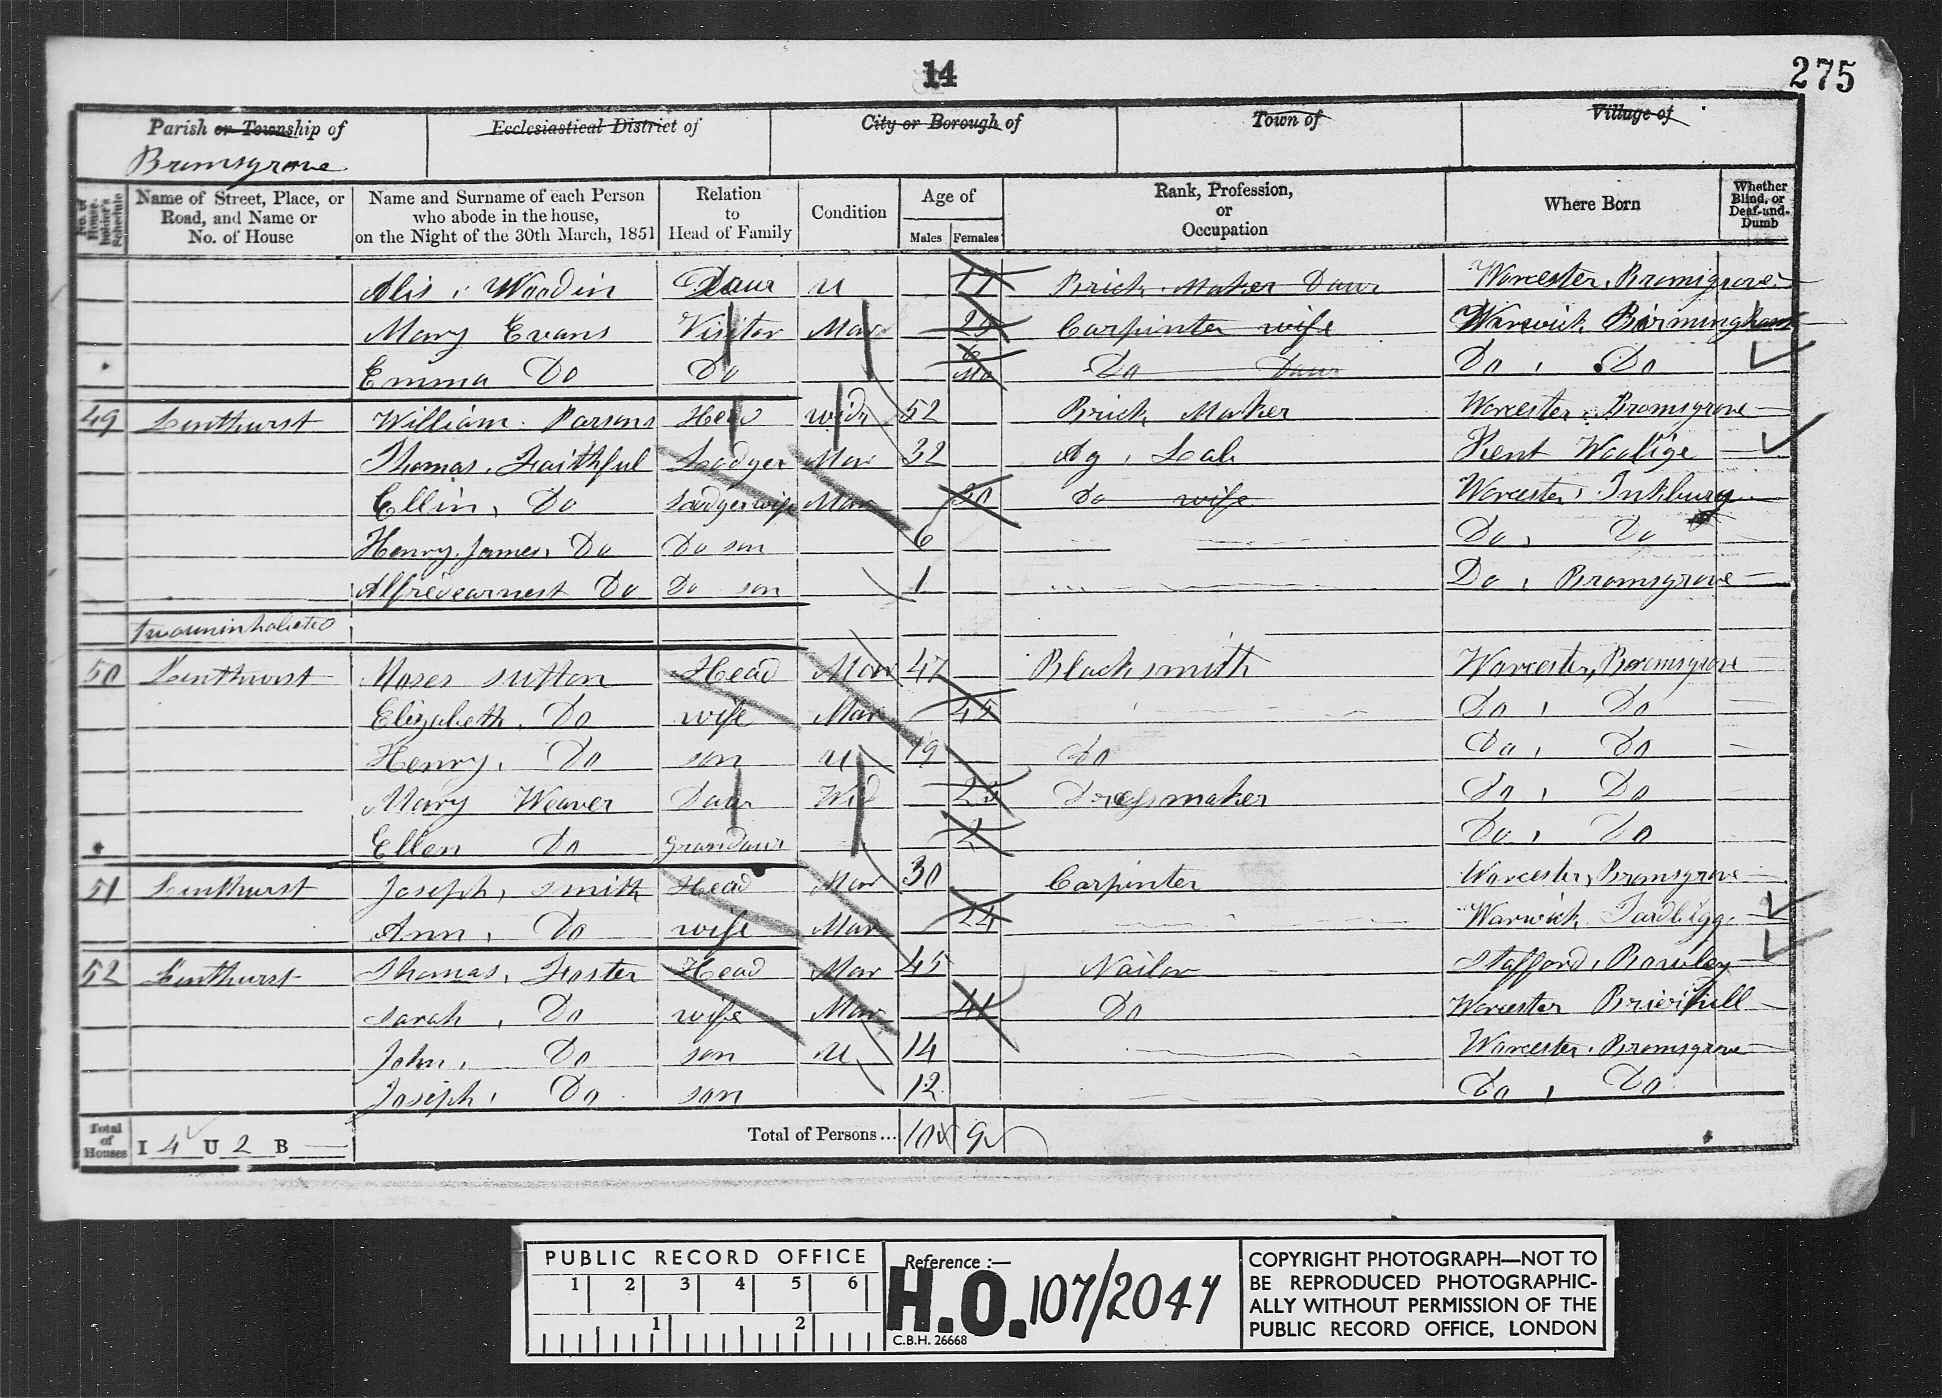 14
275
Parish or Township of
Ecclesiastical District of
City or Borough of
Town of
Village of
Bromsgrove
No. of House-holder's Schedule
Name of Street, Place, or Road, and Name or No. of House
Name and Surname of each Person who abode in the house, on the Night of the 30th March, 1851
Relation to Head of Family
Condition
Age of
Males Females
Rank, Profession, or Occupation
Where Born
Whether Blind, or Deaf-and-Dumb
Alis, Woodin Daur U 11 Brick Maker Daur Worcester, Bromsgrove
Mary Evans Visitor Mar 25 Carpinter wife Warwick Birmingham
Emma Do Do 6 Mo Do Daur Do, Do
49 Linthurst William Parsons Head widr 52 Brick Maker Worcester, Bromsgrove
Thomas, Faithful Lodger Mar 32 Ag, Lab Kent Woolige
Ellin, Do Lodger wife Mar 30 Do wife Worcester, Inkburg
Henry James, Do Do son 6 Do, Do
Alfredearnest Do Do son 1 Do, Bromsgrove
Two uninhabited
50 Linthurst Moses Sutton Head Mar 47 Blacksmith Worcester, Bromsgrove
Elizabeth, Do wife Mar Do, Do
Henry, Do son U 19 Do Do, Do
Mary Weaver Daur Wid Dressmaker Do, Do
Ellen Do Grandaur 2 Do, Do
51 Linthurst Joseph, Smith Head Mar 30 Carpinter Worcester, Bromsgrove
Ann, Do wife Mar 24 Warwick, Tardbigg
52 Linthurst Thomas, Foster Head Mar 45 Nailor Stafford, Rowley
Sarah, Do wife Mar 41 Do Worcester Brierihill
John, Do son U 14 Worcester, Bromsgrove
Joseph, Do son 12 Do, Do
Total of Houses I 4 U 2 B
Total of Persons... 10 9
PUBLIC RECORD OFFICE
1 2 3 4 5 6
1 2
Reference :—
H.O. 107/2047
C.B.H. 26668
COPYRIGHT PHOTOGRAPH—NOT TO
BE REPRODUCED PHOTOGRAPHIC-
ALLY WITHOUT PERMISSION OF THE
PUBLIC RECORD OFFICE, LONDON